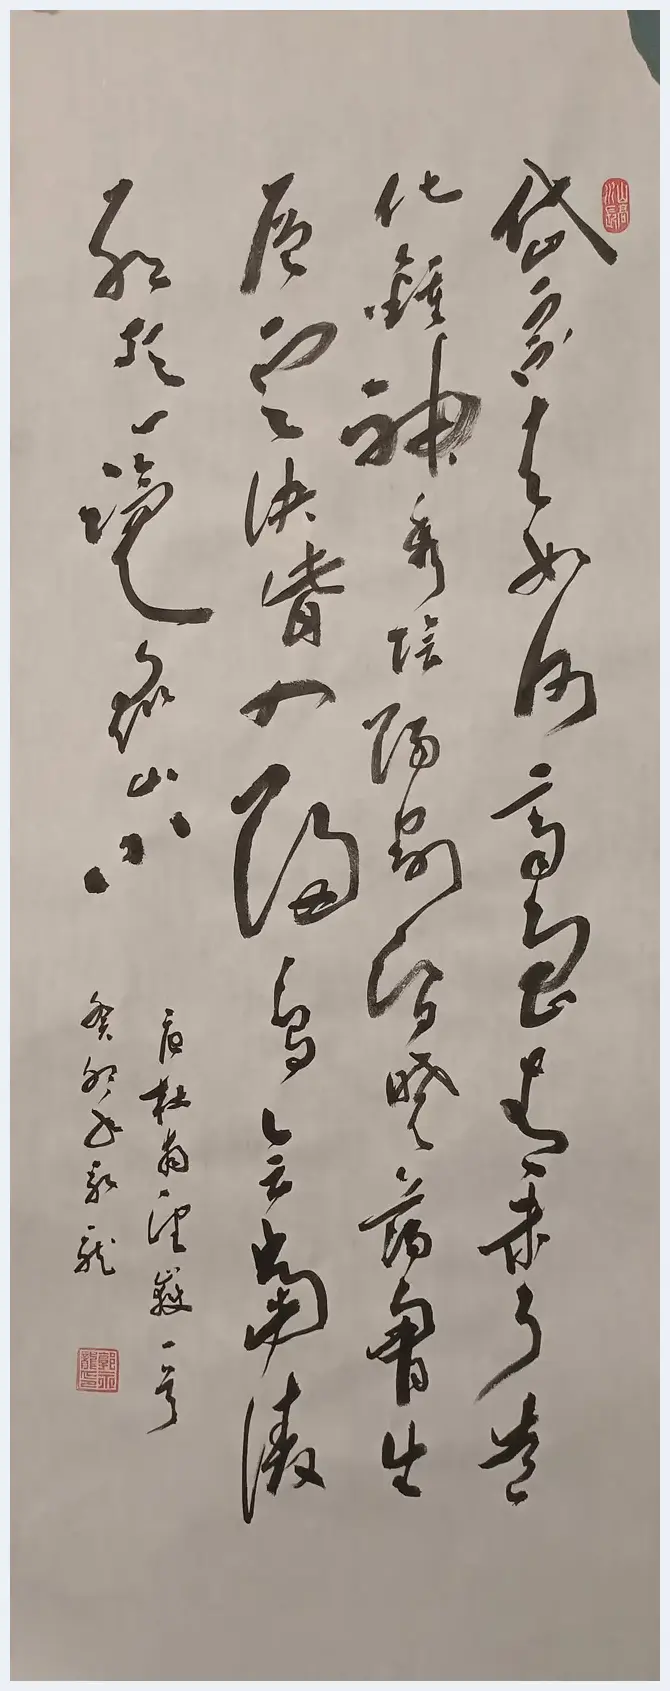 山高水長
岱宗夫如何齊魯青未了造
化鍾神秀陰陽割昏曉蕩胷生
層雲決眥入歸鳥會當淩
絕頂一覽眾山小
唐杜甫望嶽一首
癸卯年 龍